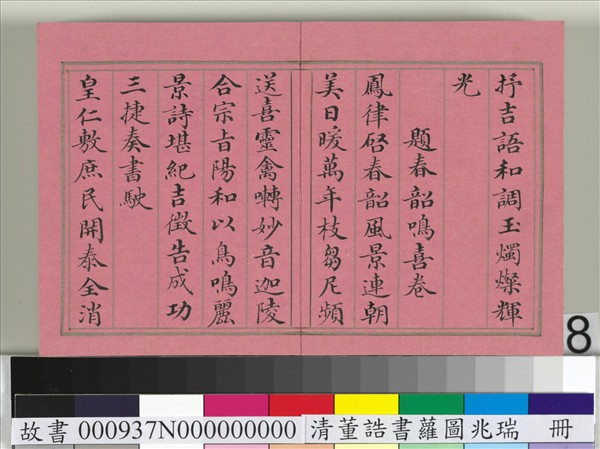 抒吉語和調玉燭燦輝
光
題春韶鳴喜卷
鳳律啓春韶風景連朝
美日暖萬年枝芻尼頻
送喜靈禽囀妙音迦陵
合宗旨陽和以鳥鳴麗
景詩堪紀吉徵告成功
三捷奏書馳
皇仁敷庶民開泰全消
8
故書 000937N000000000 清董誥書蘿圖兆瑞 冊